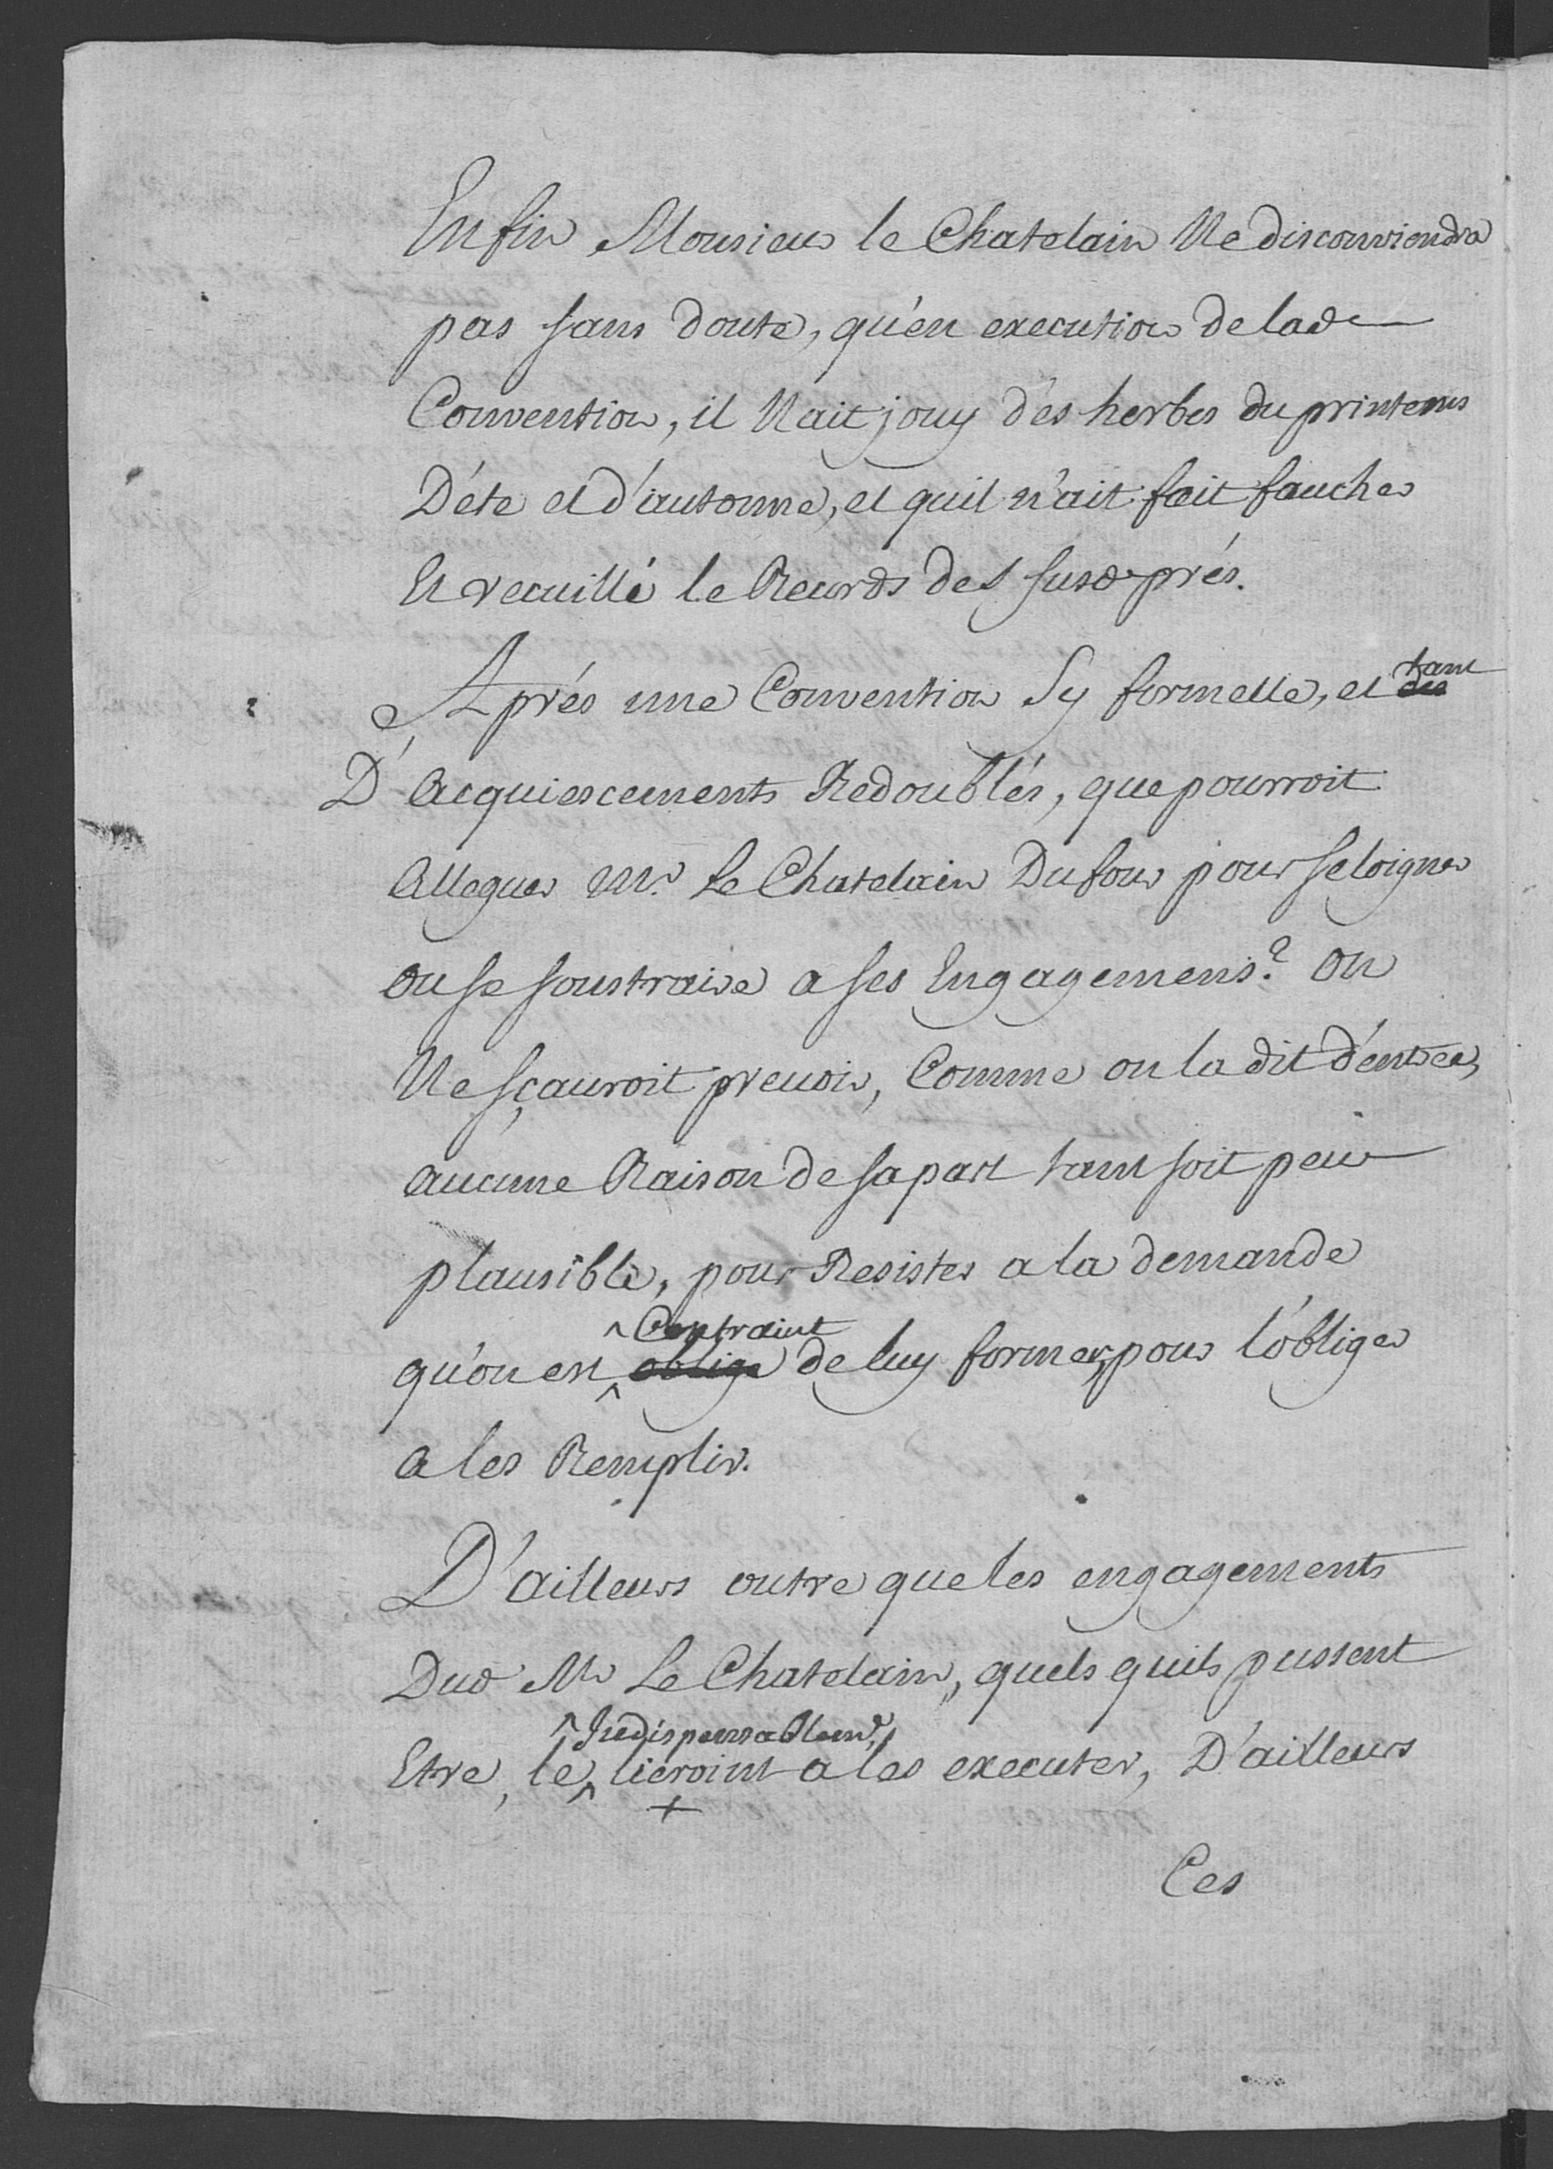 Enfin Monsieur le Chatelain Ne disconviendra
pas sans doute, qu'en execution de lade
Convention, il N'ait jouy des herbes du printems
D'éte et d'automne, et quil n'ait fait faucher
Et recuilli le Records des susd prés.
Aprés une Convention Sy formelle, et tant
D'Acquiescements Redoublés, que pourroit
Alleguer Mr. Le Chatelain Dufour pour seloigner
ou se soustraire a ses Engagemens? On
Ne sçauroit prevoir, Comme on la dit d'entrée,
aucune Raison de sa part tant soit peu
plausible, pour Resister a la demande
^ Contraint
qu'on est oblige de luy former, pour l'obliger
a les Remplir.
D'ailleurs outre que les engagements
Dud Mr Le Chatelain, quels quils pussent
^ Indispensablemt
Etre, le ^ lieroint a les executer, D'ailleurs
+
Ces